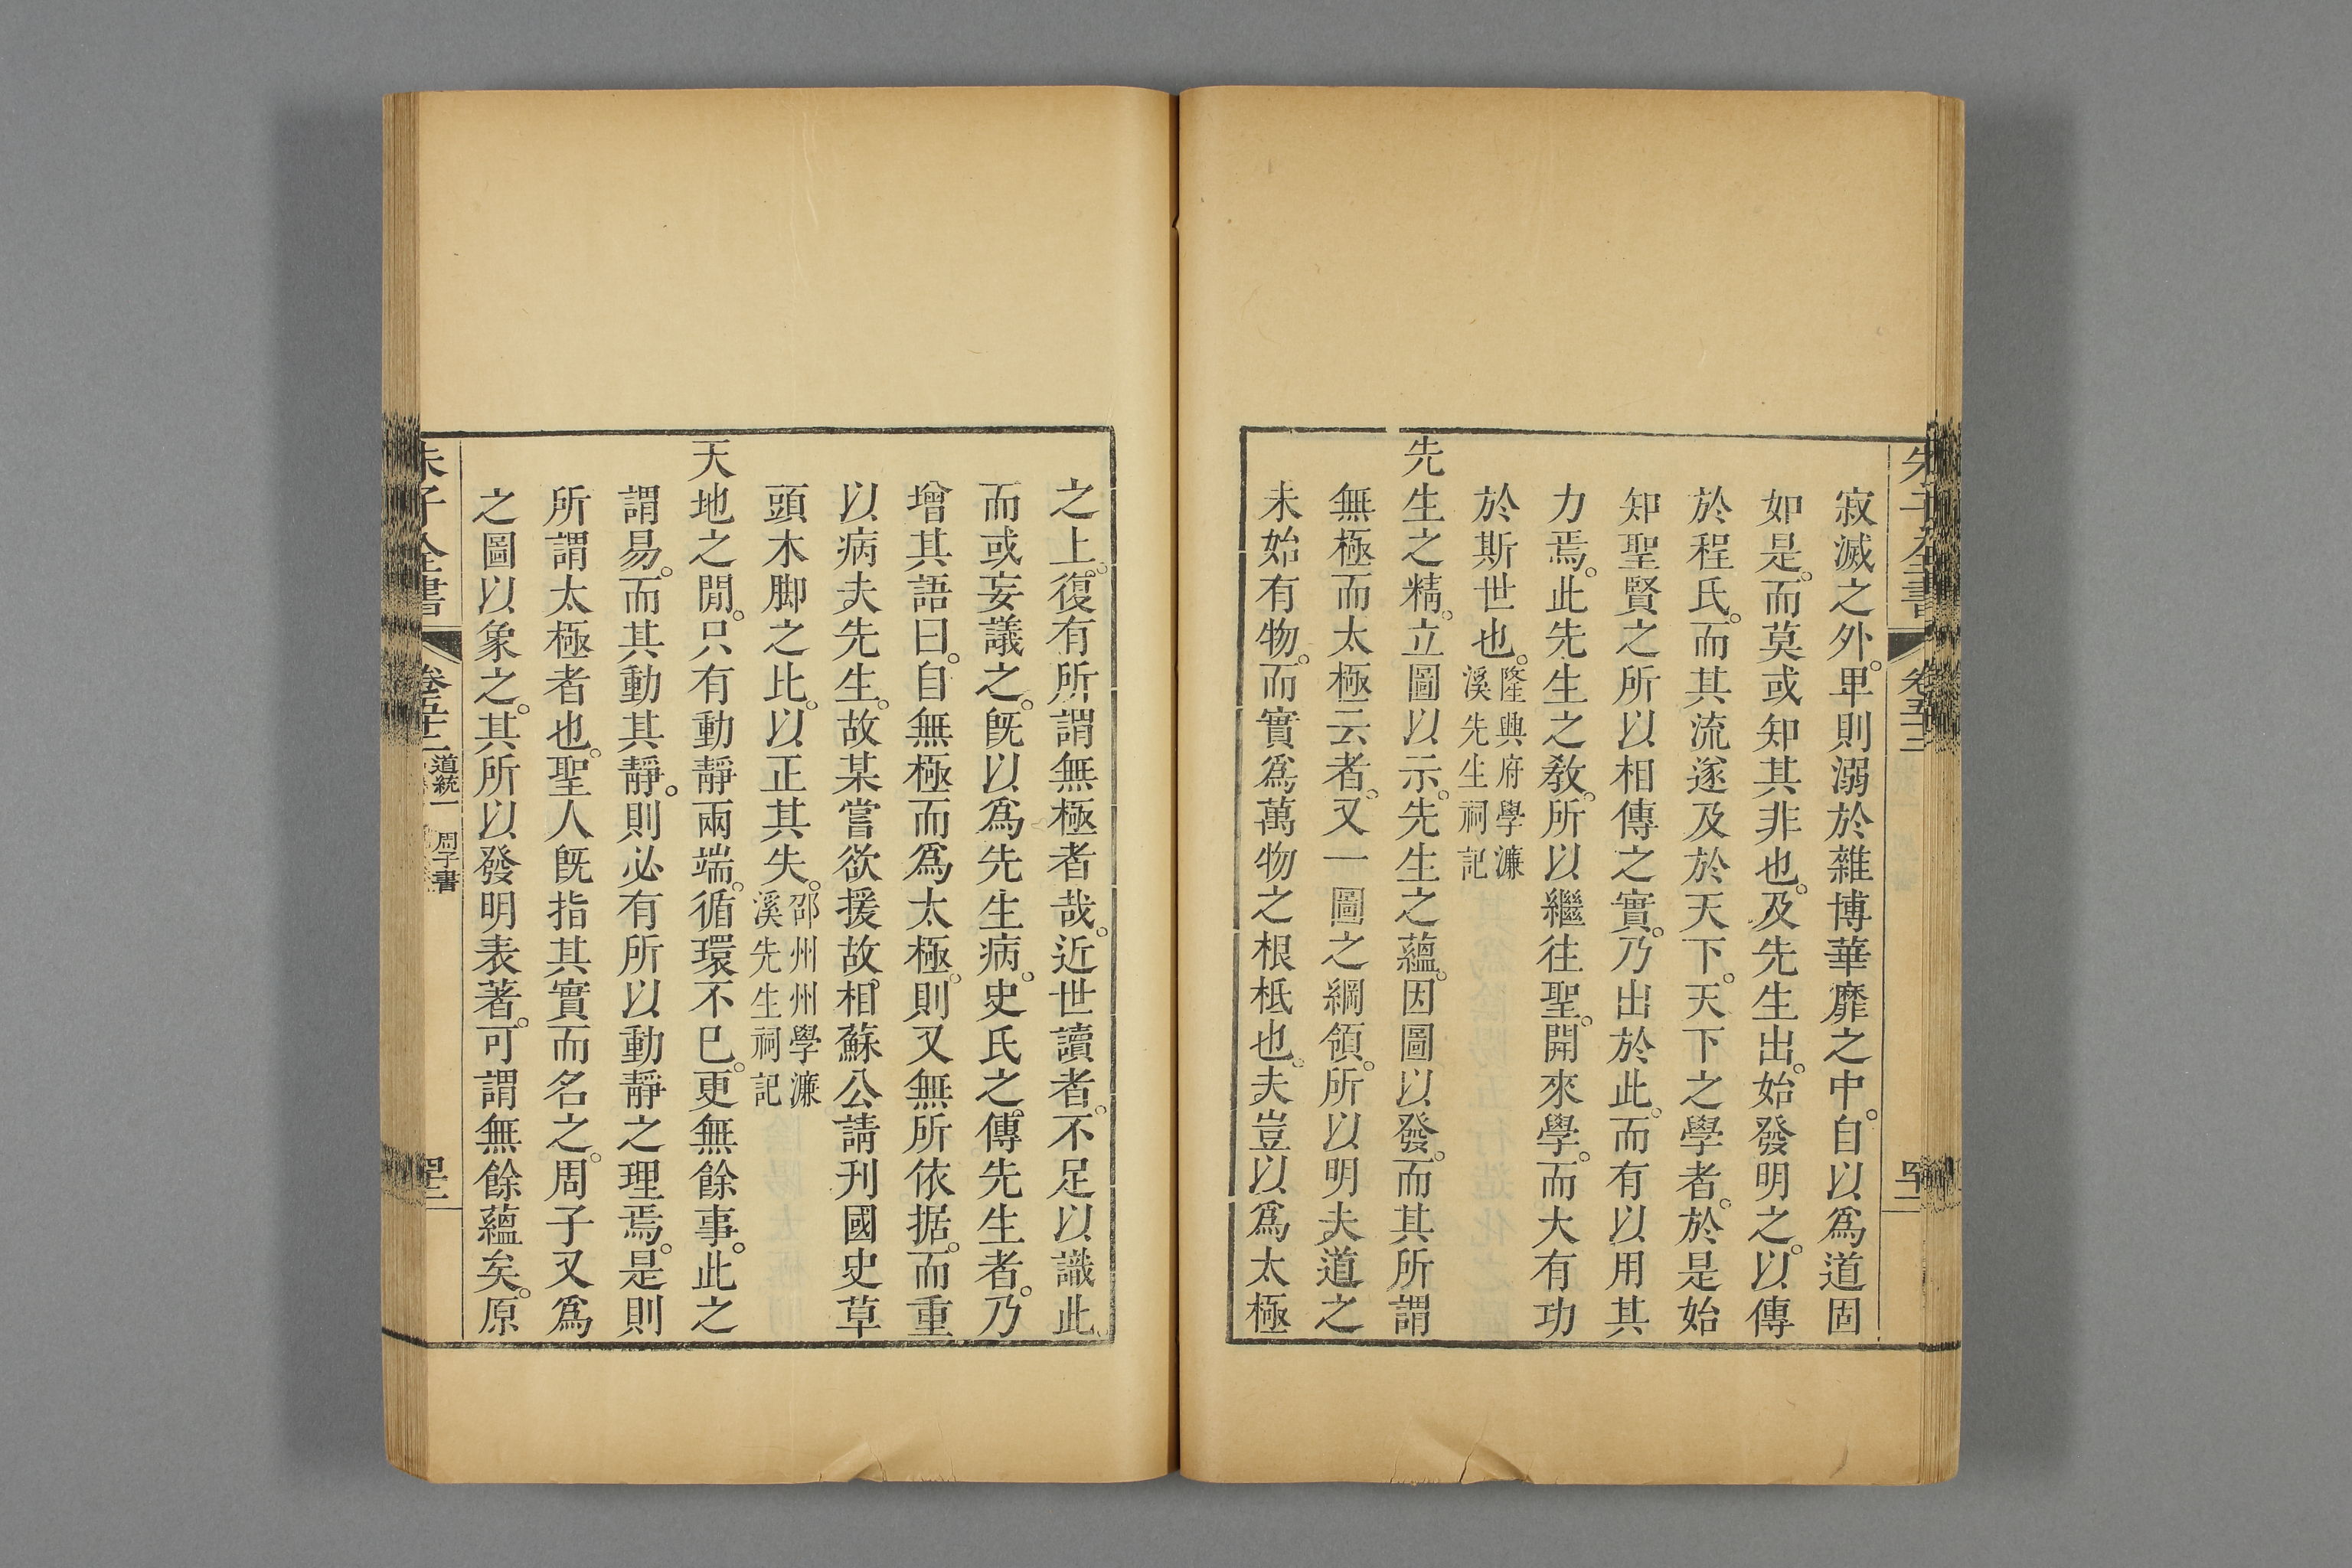 寂滅之外。卑則溺於雜博華靡之中。自以爲道固
如是。而莫或知其非也。及先生出。始發明之。以傳
於程氏。而其流遂及於天下。天下之學者。於是始
知聖賢之所以相傳之實。乃出於此。而有以用其
力焉。此先生之敎。所以繼往聖。開來學。而大有功
於斯世也。隆興府學濂溪先生祠記
先生之精。立圖以示。先生之蘊。因圖以發。而其所謂
無極而太極云者。又一圖之綱領。所以明夫道之
未始有物。而實爲萬物之根柢也。夫豈以爲太極
之上。復有所謂無極者哉。近世讀者。不足以識此
而或妄議之。旣以爲先生病。史氏之傳先生者。乃
增其語曰。自無極而爲太極。則又無所依据。而重
以病夫先生。故某嘗欲援故相蘇公請刊國史草
頭木脚之比。以正其失。邵州州學濂溪先生祠記
天地之閒。只有動靜兩端。循環不已。更無餘事。此之
謂易。而其動其靜。則必有所以動靜之理焉。是則
所謂太極者也。聖人旣指其實而名之。周子又爲
之圖以象之。其所以發明表著。可謂無餘蘊矣。原
朱子全書
卷五十二
道統一
周子書